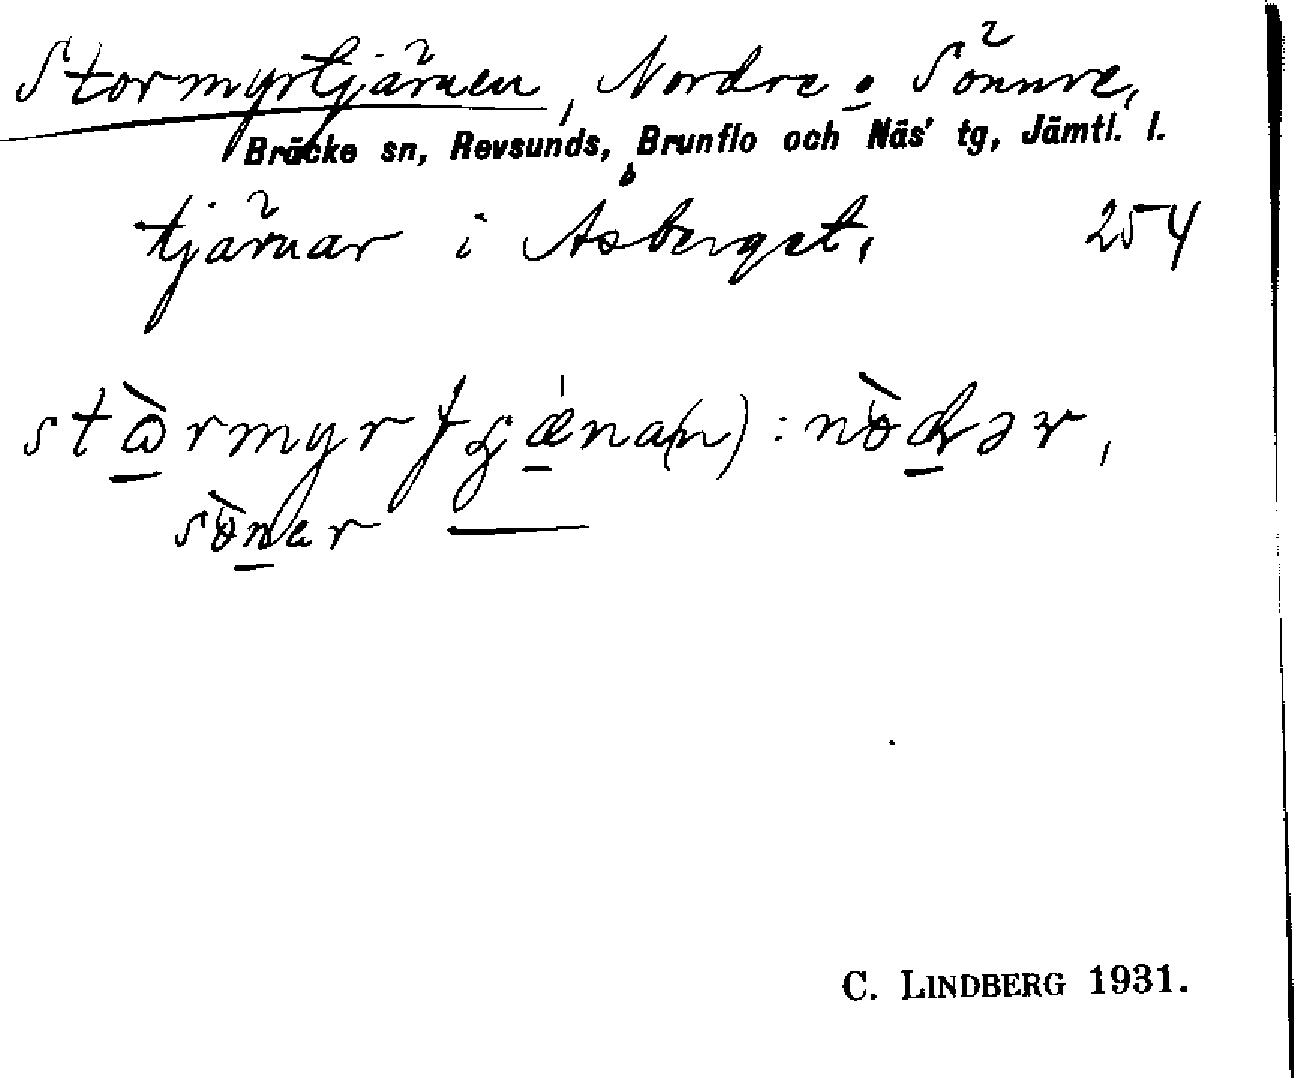 Stormyrtjärnen, Nordre o Sönnre,
Bräcke sn, Revsunds, Brunflo och Näs' tg, Jämtl. l.
tjärnar i Åsberget. 254
C. LINDBERG 1931.